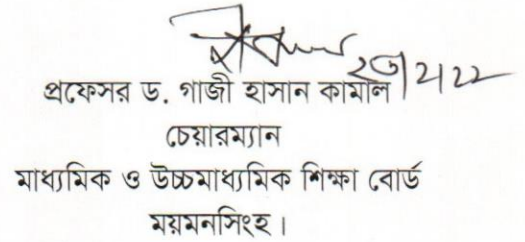 ২৩/২/২২
প্রফেসর ড. গাজী হাসান কামাল
চেয়ারম্যান
মাধ্যমিক ও উচ্চমাধ্যমিক শিক্ষা বোর্ড
ময়মনসিংহ।